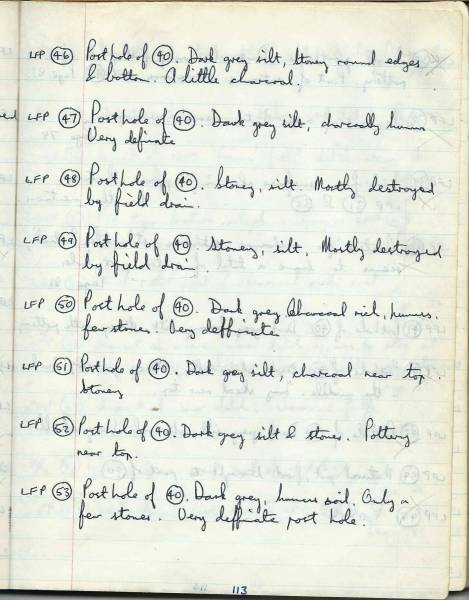 LFP 46 Post hole of 40. Dark grey silt, stoney round edges
& bottom. A little charcoal.
LFP 47 Post hole of 40. Dark grey silt, charcoally humus
Very definate
LFP 48 Post hole of 40. Stoney, silt. Mostly destroyed
by field drain.
LFP 49 Post hole of 40 Stoney, silt. Mostly destroyed
by field drain.
LFP 50 Post hole of 40. Dark, grey Charcoal rich, humus.
few stones. Very deffinate
LFP 51 Post hole of 40. Dark grey silt, charcoal near top.
Stoney
LFP 52 Post hole of 40. Dark grey silt & stones. Pottery
near top.
LFP 53 Post hole of 40. Dark grey, humus soil. Only a
few stones. Very deffinate post hole.
113